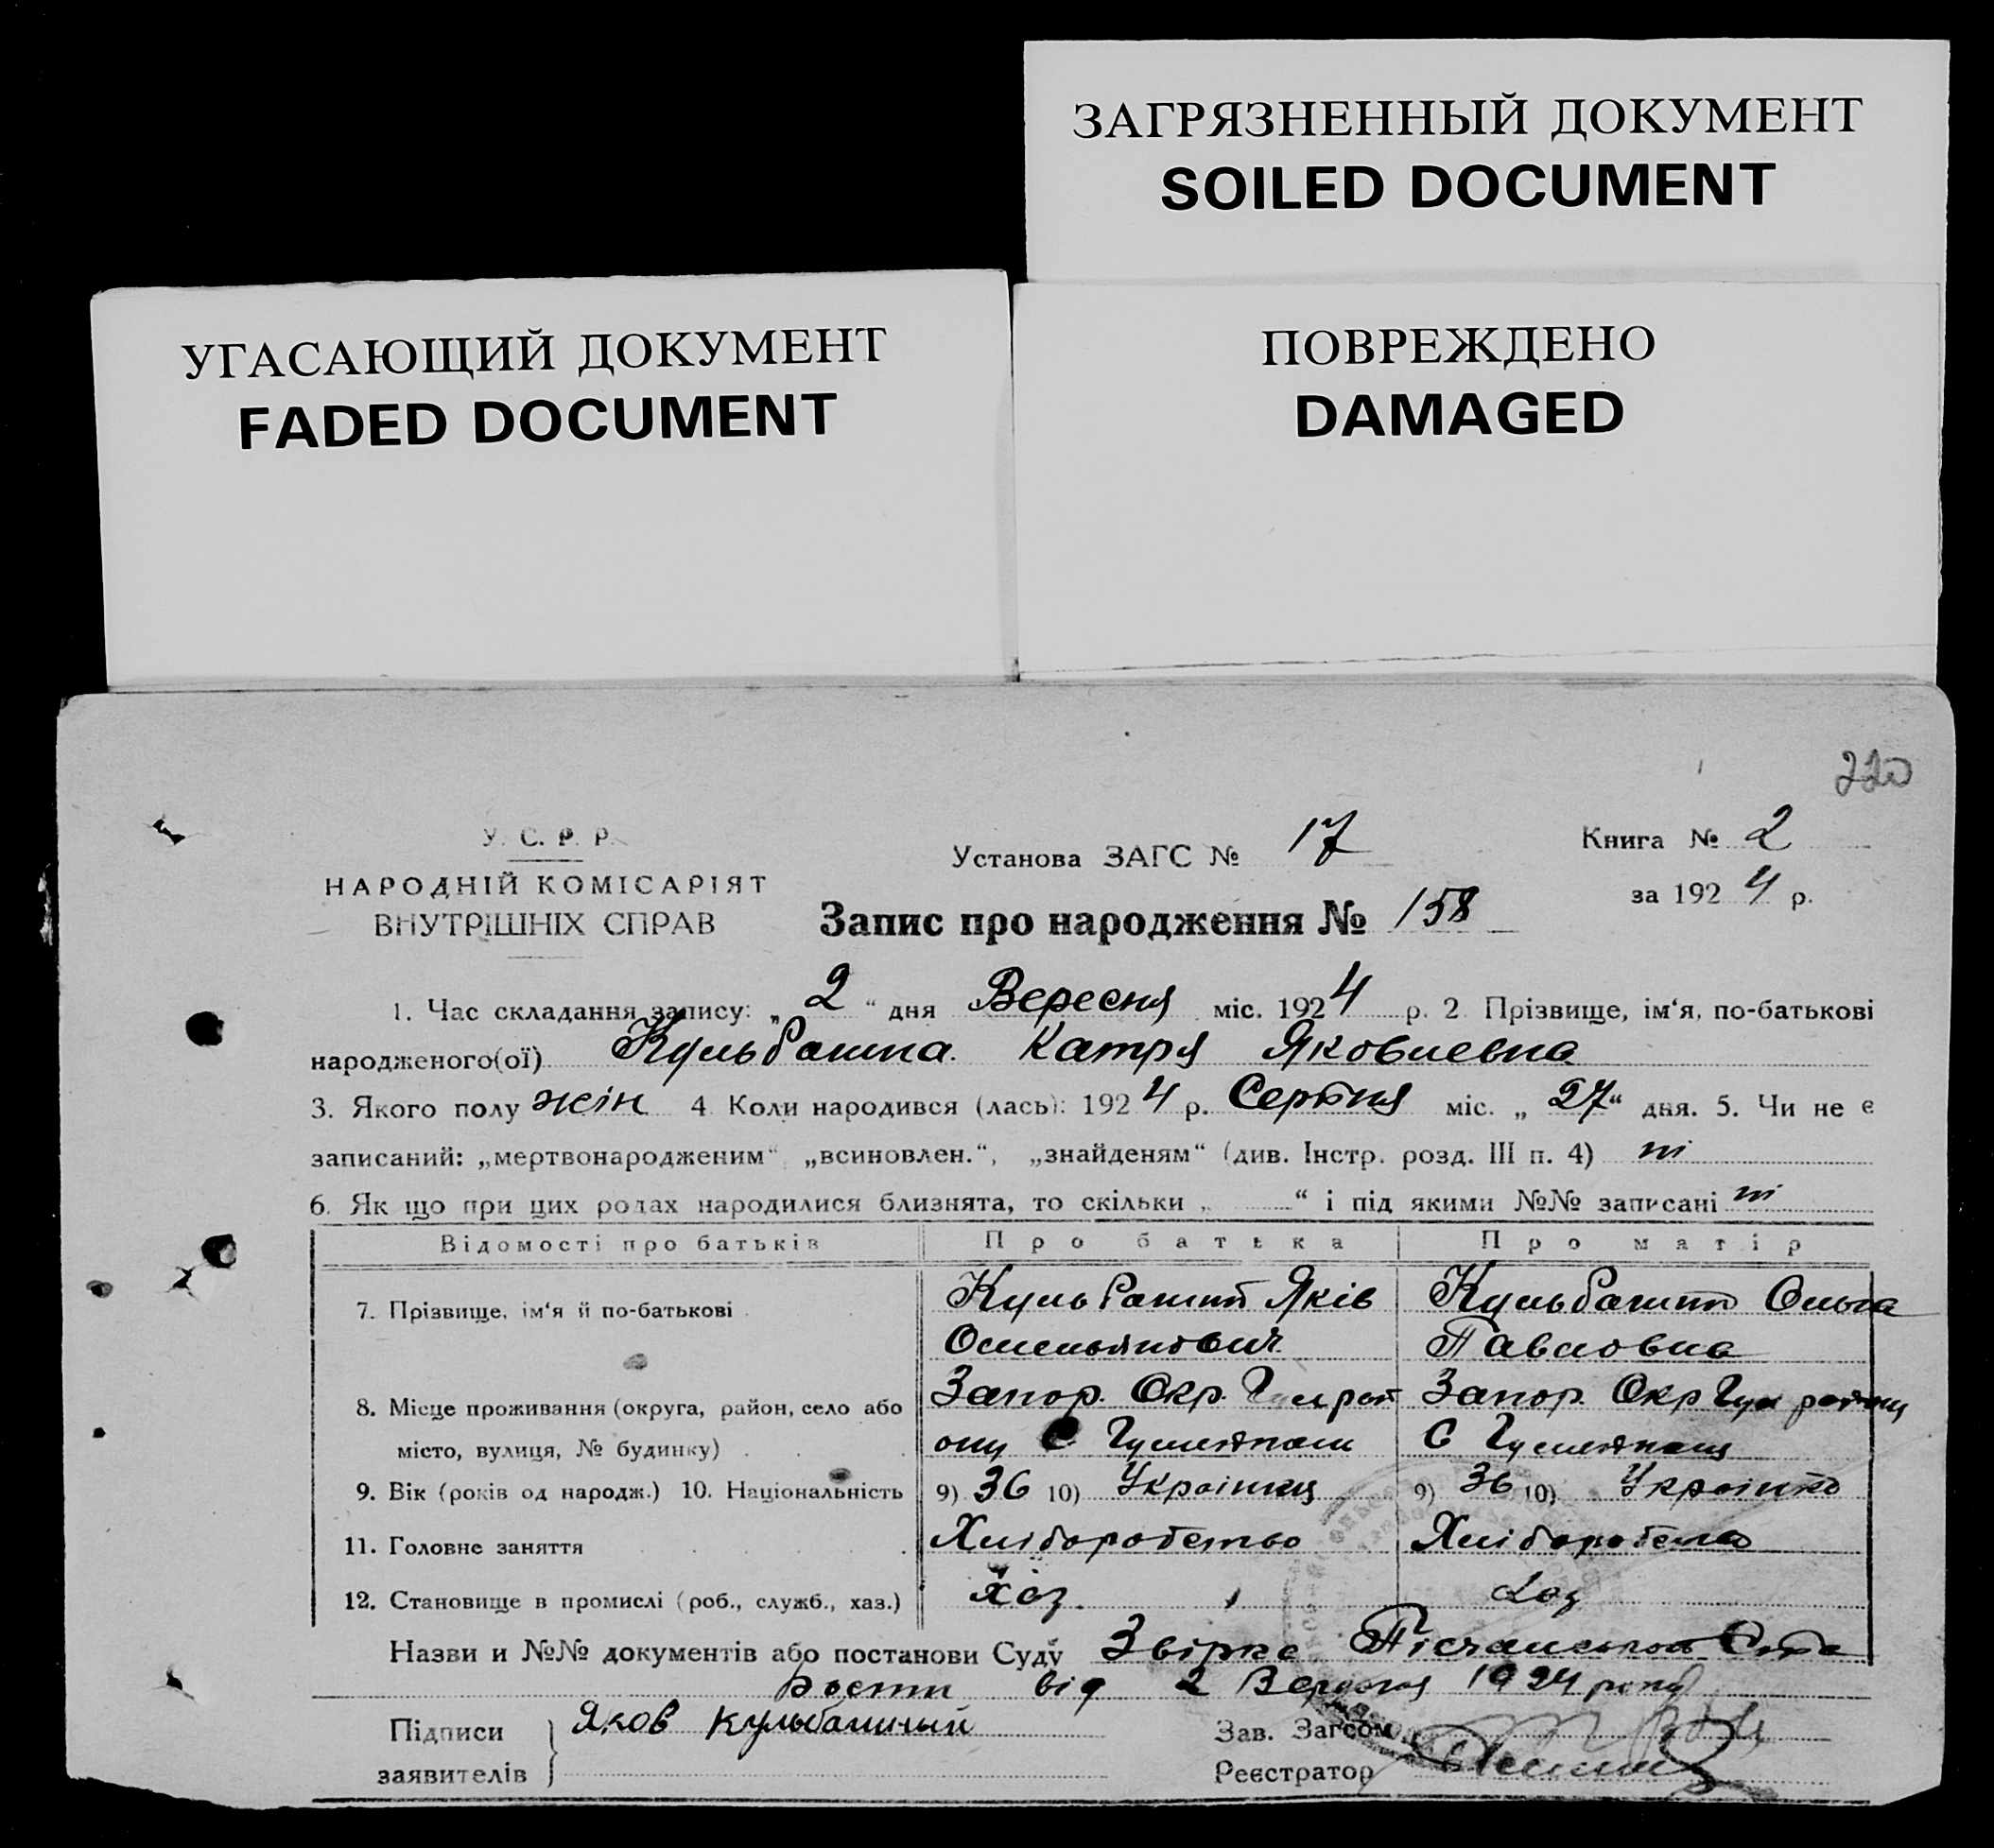 ЗАГРЯЗНЕННЫЙ ДОКУМЕНТ
SOILED DOCUMENT
УГАСАЮЩИЙ ДОКУМЕНТ
FADED DOCUMENT
ПОВРЕЖДЕНО
DAMAGED
220
У. С. Р. Р.
НАРОДНІЙ КОМІСАРІЯТ
ВНУТРІШНІХ СПРАВ
Установа ЗАГС № 17
Книга № 2
за 1924 р.
Запис про народження № 158
1. Час складання запису: „2“ дня Вересня міс. 1924 р. 2 Прізвище, ім‘я, по-батькові
народженого(ої) Катря Яковлевна
3. Якого полу жін 4 Коли народився (лась): 1924 р. Серпня міс. „27“ дня. 5. Чи не є
записаний: „мертвонародженим“ „всиновлен.“, „знайденям“ (див. Інстр. розд. III п. 4) ні
6. Як що при цих родах народилися близнята, то скільки „ “ і під якими №№ записані ні
Відомості про батьків Про батька Про матір
7. Прізвище, ім‘я й по-батькові Яків Ольга
Омельянович Павловна
8. Місце проживання (округа, район, село або Запор. Окр. Запор. Окр Гул району
місто, вулиця, № будинку) ону С С
9. Вік (років од народж.) 10. Національність 9) 36 10) Українець 9) 36 10)
11. Головне заняття Хліборобство Хліборобство
12. Становище в промислі (роб., служб., хаз.) хаз. хаз
Назви и №№ документів або постанови Суду
від 2 Вересня 1924 року
Підписи Яков Зав. Загсом
заявителів Реєстратор